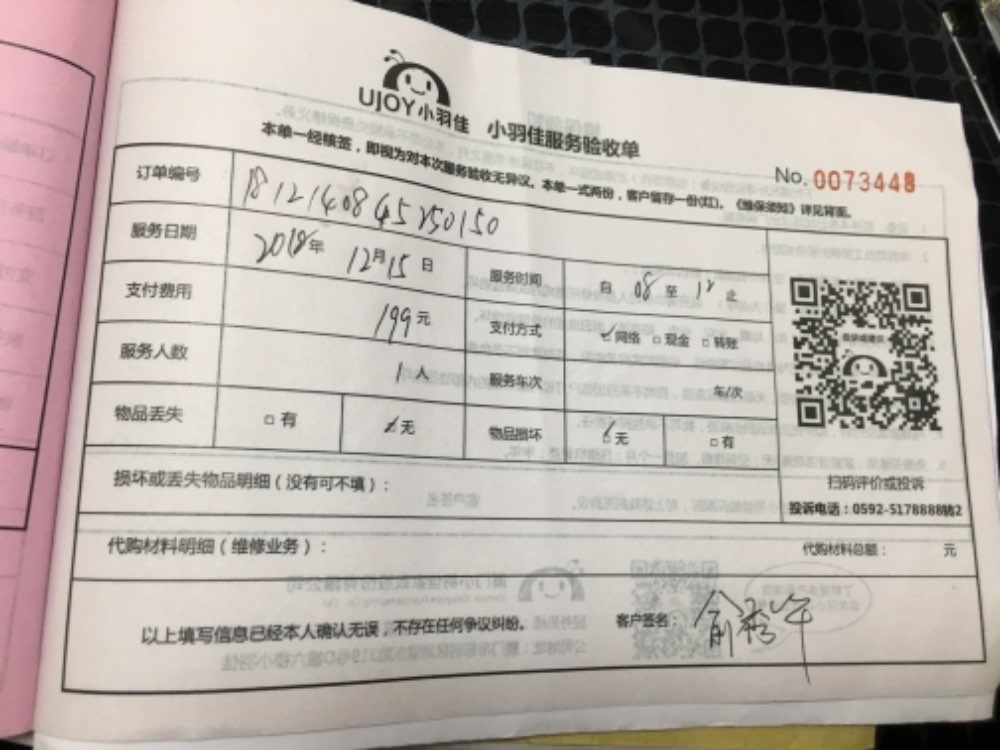 UJOY小羽佳 小羽佳服务验收单
本单一经核签，即视为对本次服务验收无异议。本单一式两份，客户留存一份(红)。《维保须知》详见背面。
No. 0073448
订单编号 1812140845250150
服务日期 2018年 12月15日 服务时间 自 08 至 12 止
支付费用 199元 支付方式 ☑网络 □现金 □转账
服务人数 1人 服务车次 车/次
物品丢失 □有 ☑无 物品损坏 ☑无 □有
扫码评价或投诉
投诉电话：0592-5178888转2
损坏或丢失物品明细（没有可不填）：
代购材料明细（维修业务）： 代购材料总额： 元
以上填写信息已经本人确认无误，不存在任何争议纠纷。 客户签名：